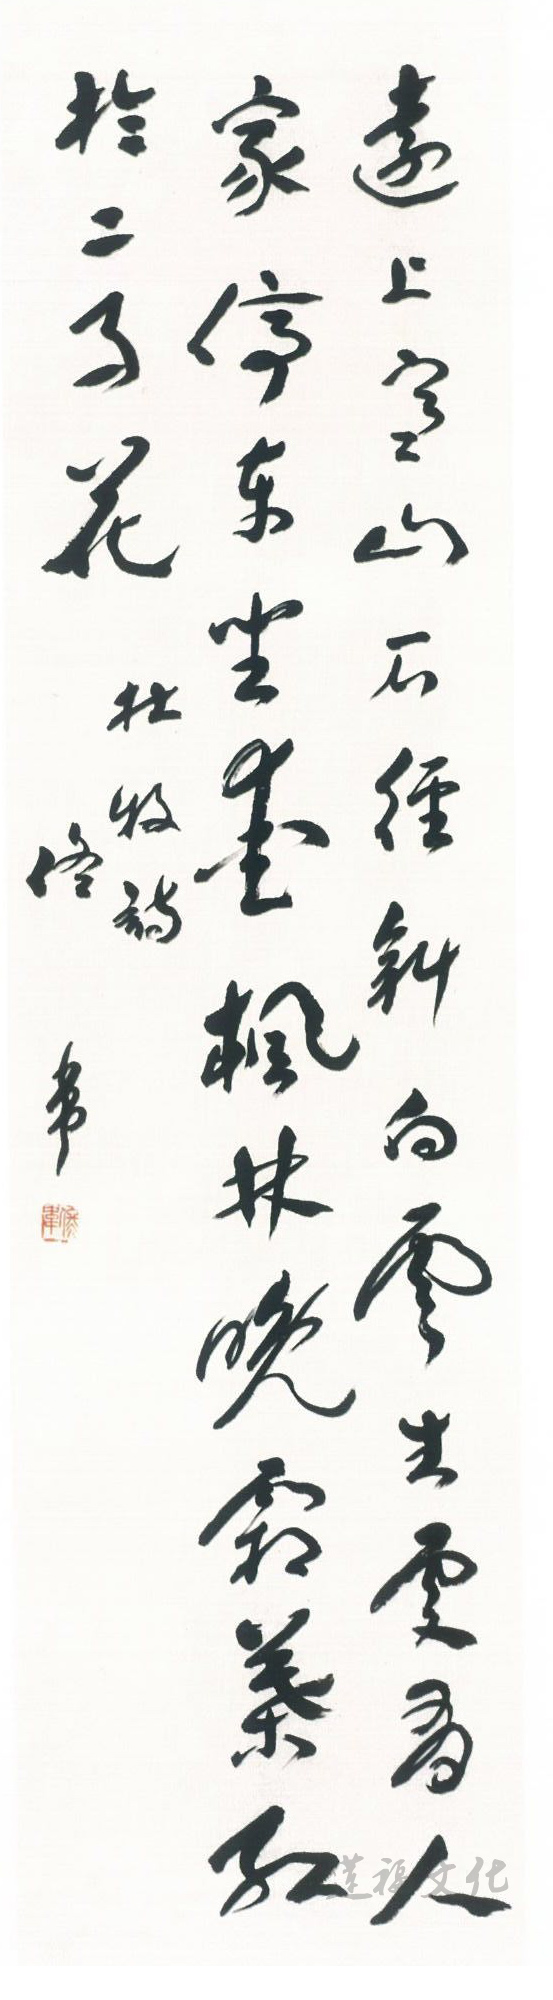 遠上寒山石徑斜白雲生處有人
家停車坐愛楓林晚霜葉紅
於二月花
杜牧詩
道福文化